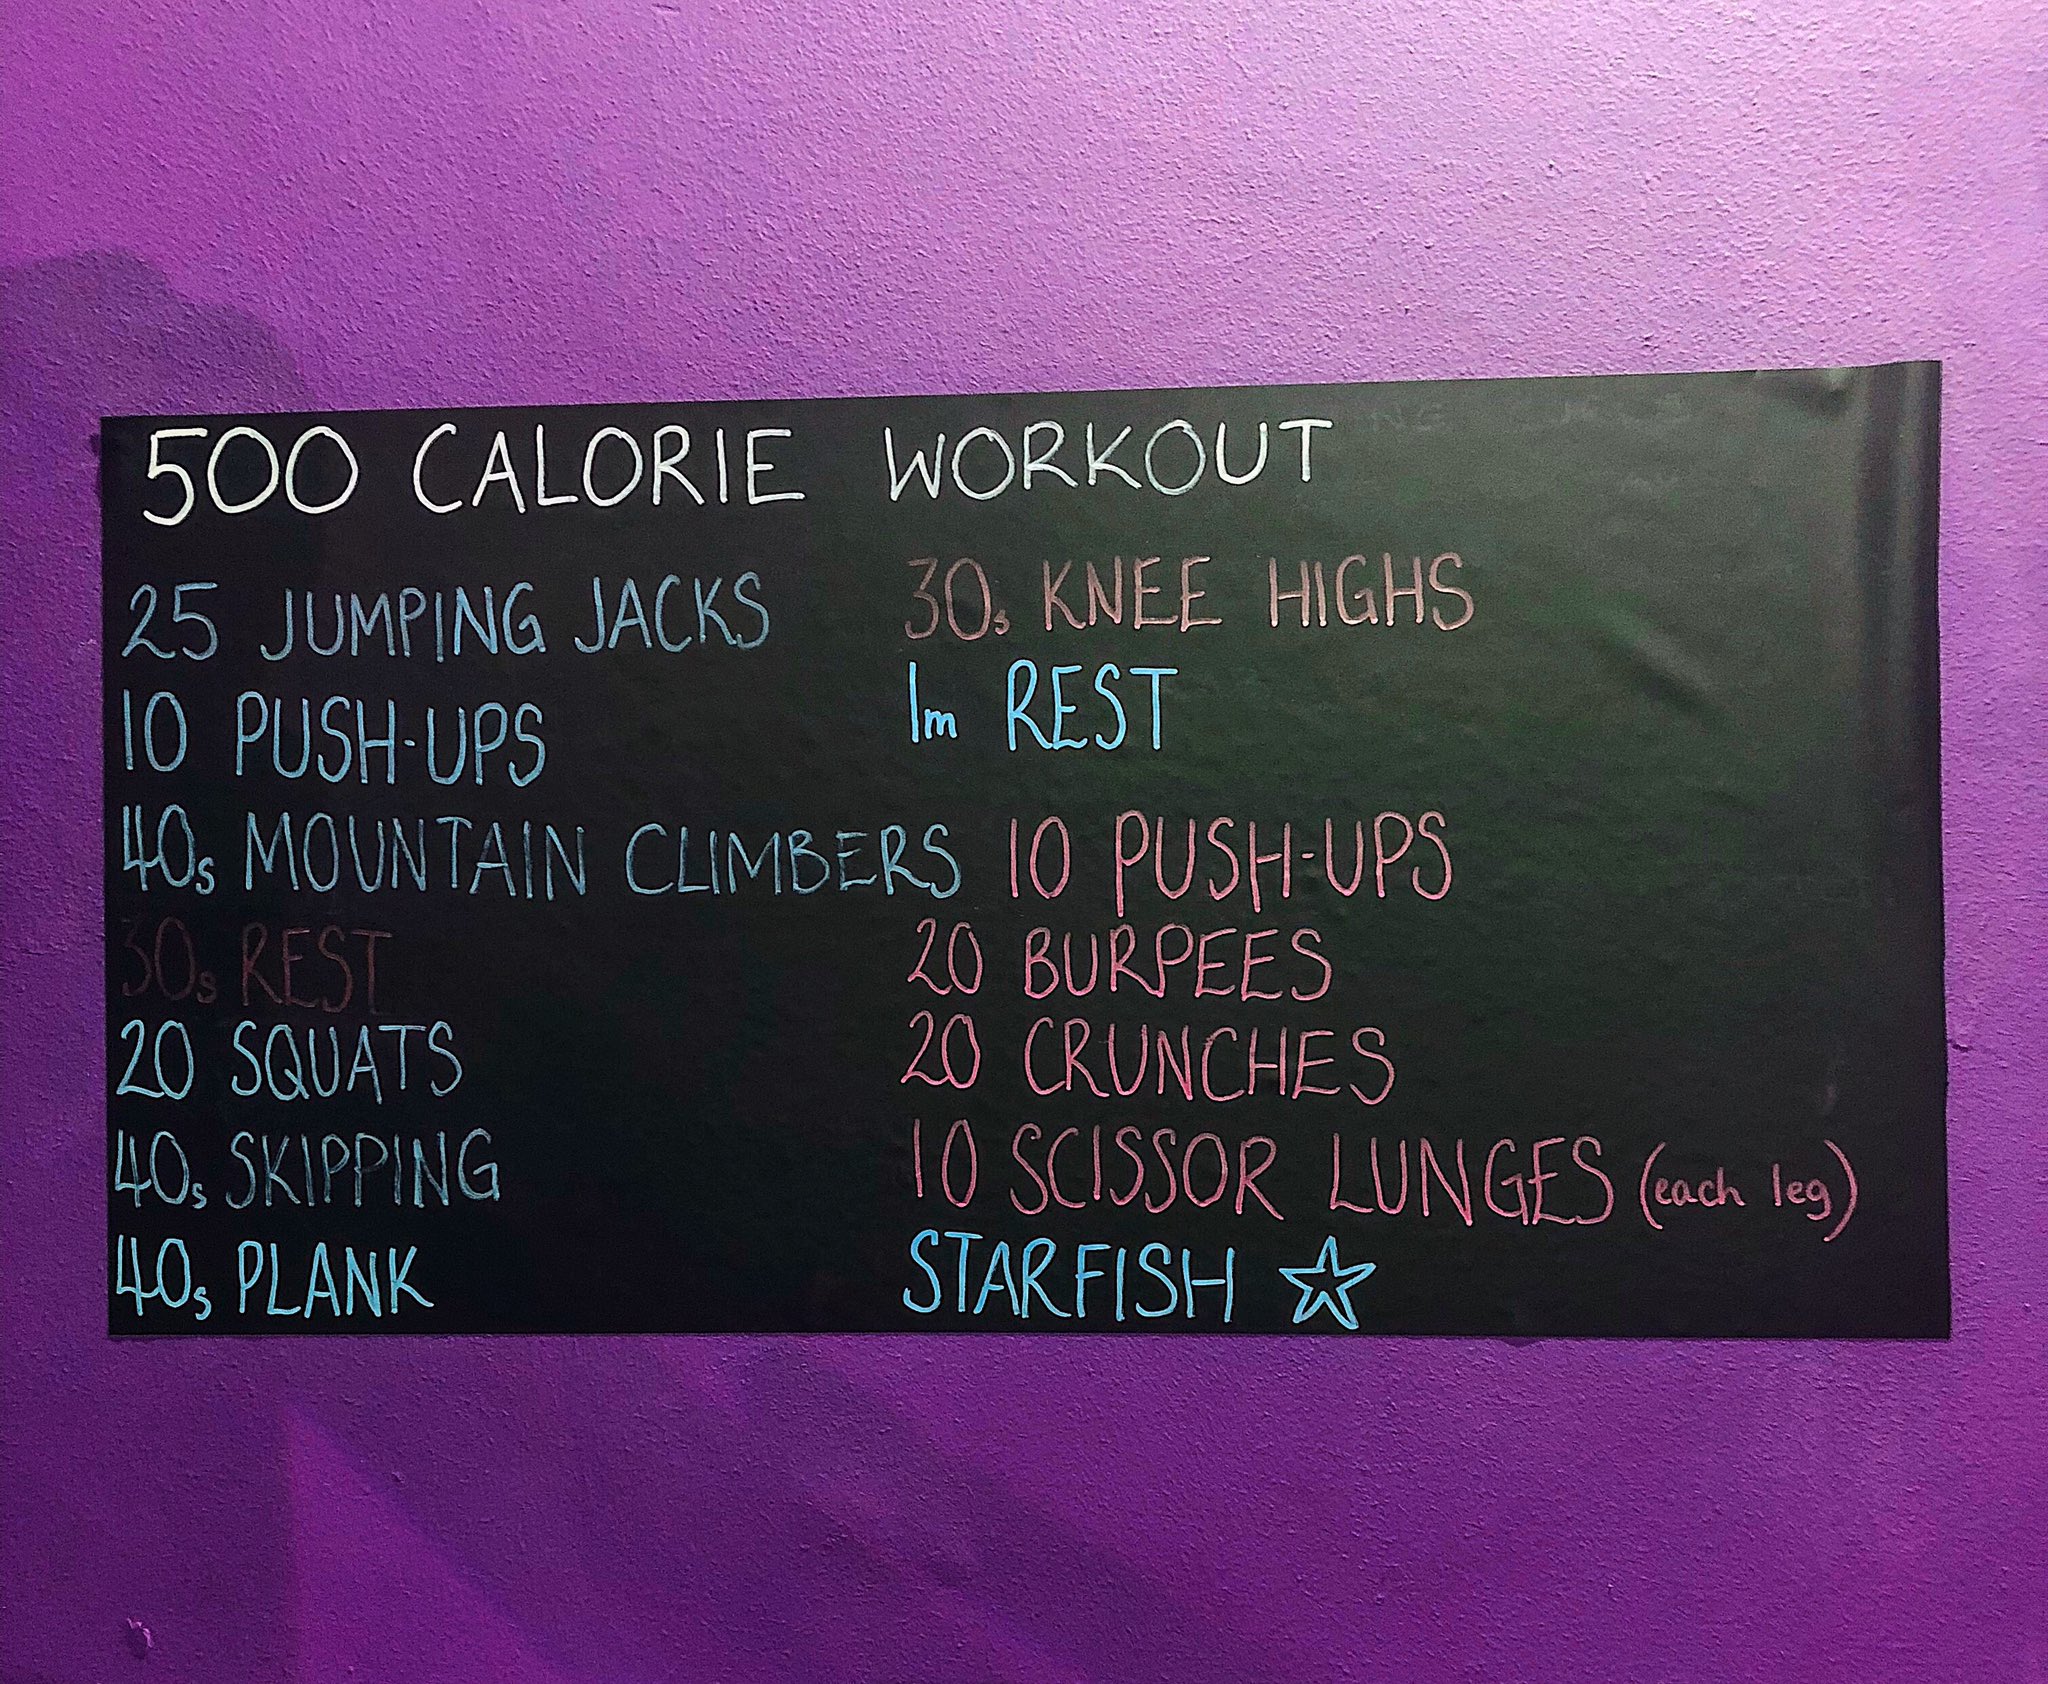 500 CALORIE WORKOUT
25 JUMPING JACKS
10 PUSH-UPS
40s MOUNTAIN CLIMBERS
30s REST
20 SQUATS
40s SKIPPING
40s PLANK
30s KNEE HIGHS
1m REST
10 PUSH-UPS
20 BURPEES
20 CRUNCHES
10 SCISSOR LUNGES (each leg)
STARFISH